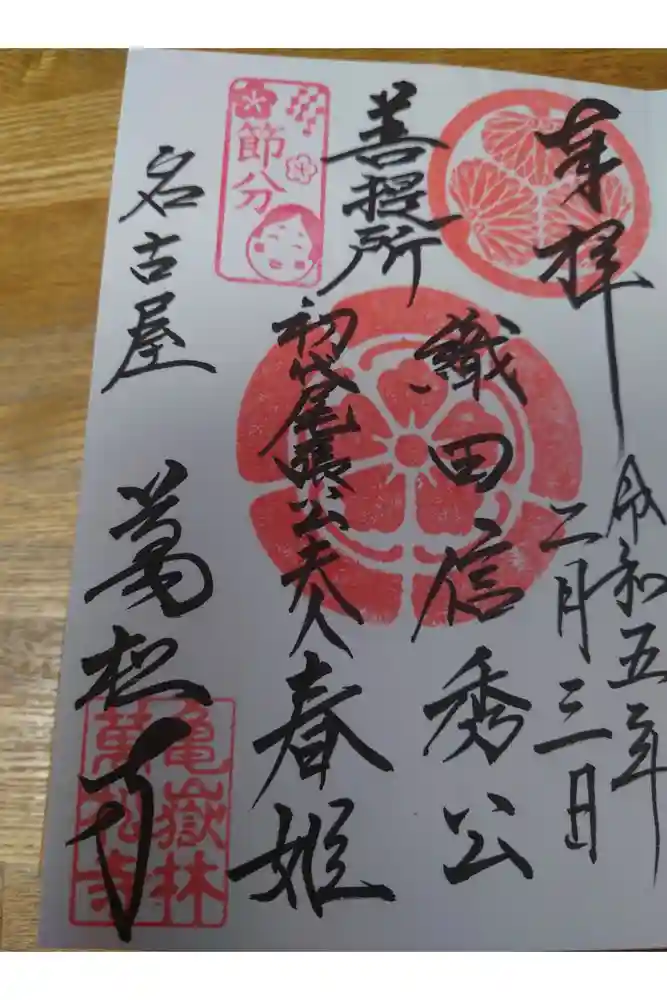 奉拝
令和五年
二月三日
菩提所
織田信秀公
初代尾張公夫人
春姫
節分
名古屋
萬松寺
亀嶽林
萬松寺